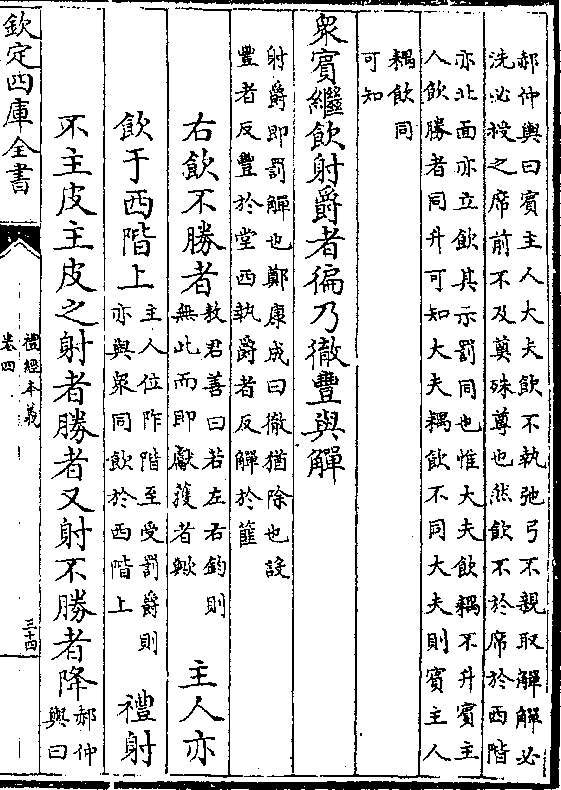 郝仲輿曰賓主人大夫飲不執弛弓不親取觶觶必
洗必授之席前不及奠殊尊也然飲不於席於西階
亦北面亦立飲其示罰同也惟大夫飲耦不升賓主
人飲勝者同升可知大夫耦飲不同大夫則賓主人
耦飲同
可知
衆賓繼飲射爵者徧乃徹豐與觶
射爵即罰觶也鄭康成曰徹猶除也設
豐者反豐於堂西執爵者反觶於篚
右飲不勝者
敖君善曰若左右鈞則
無此而即獻獲者歟
主人亦
飲于西階上
主人位阼階至受罰爵則
亦與衆同飲於西階上
禮射
不主皮主皮之射者勝者又射不勝者降
郝仲
輿曰
欽定四庫全書
禮經本義
卷四
三十四